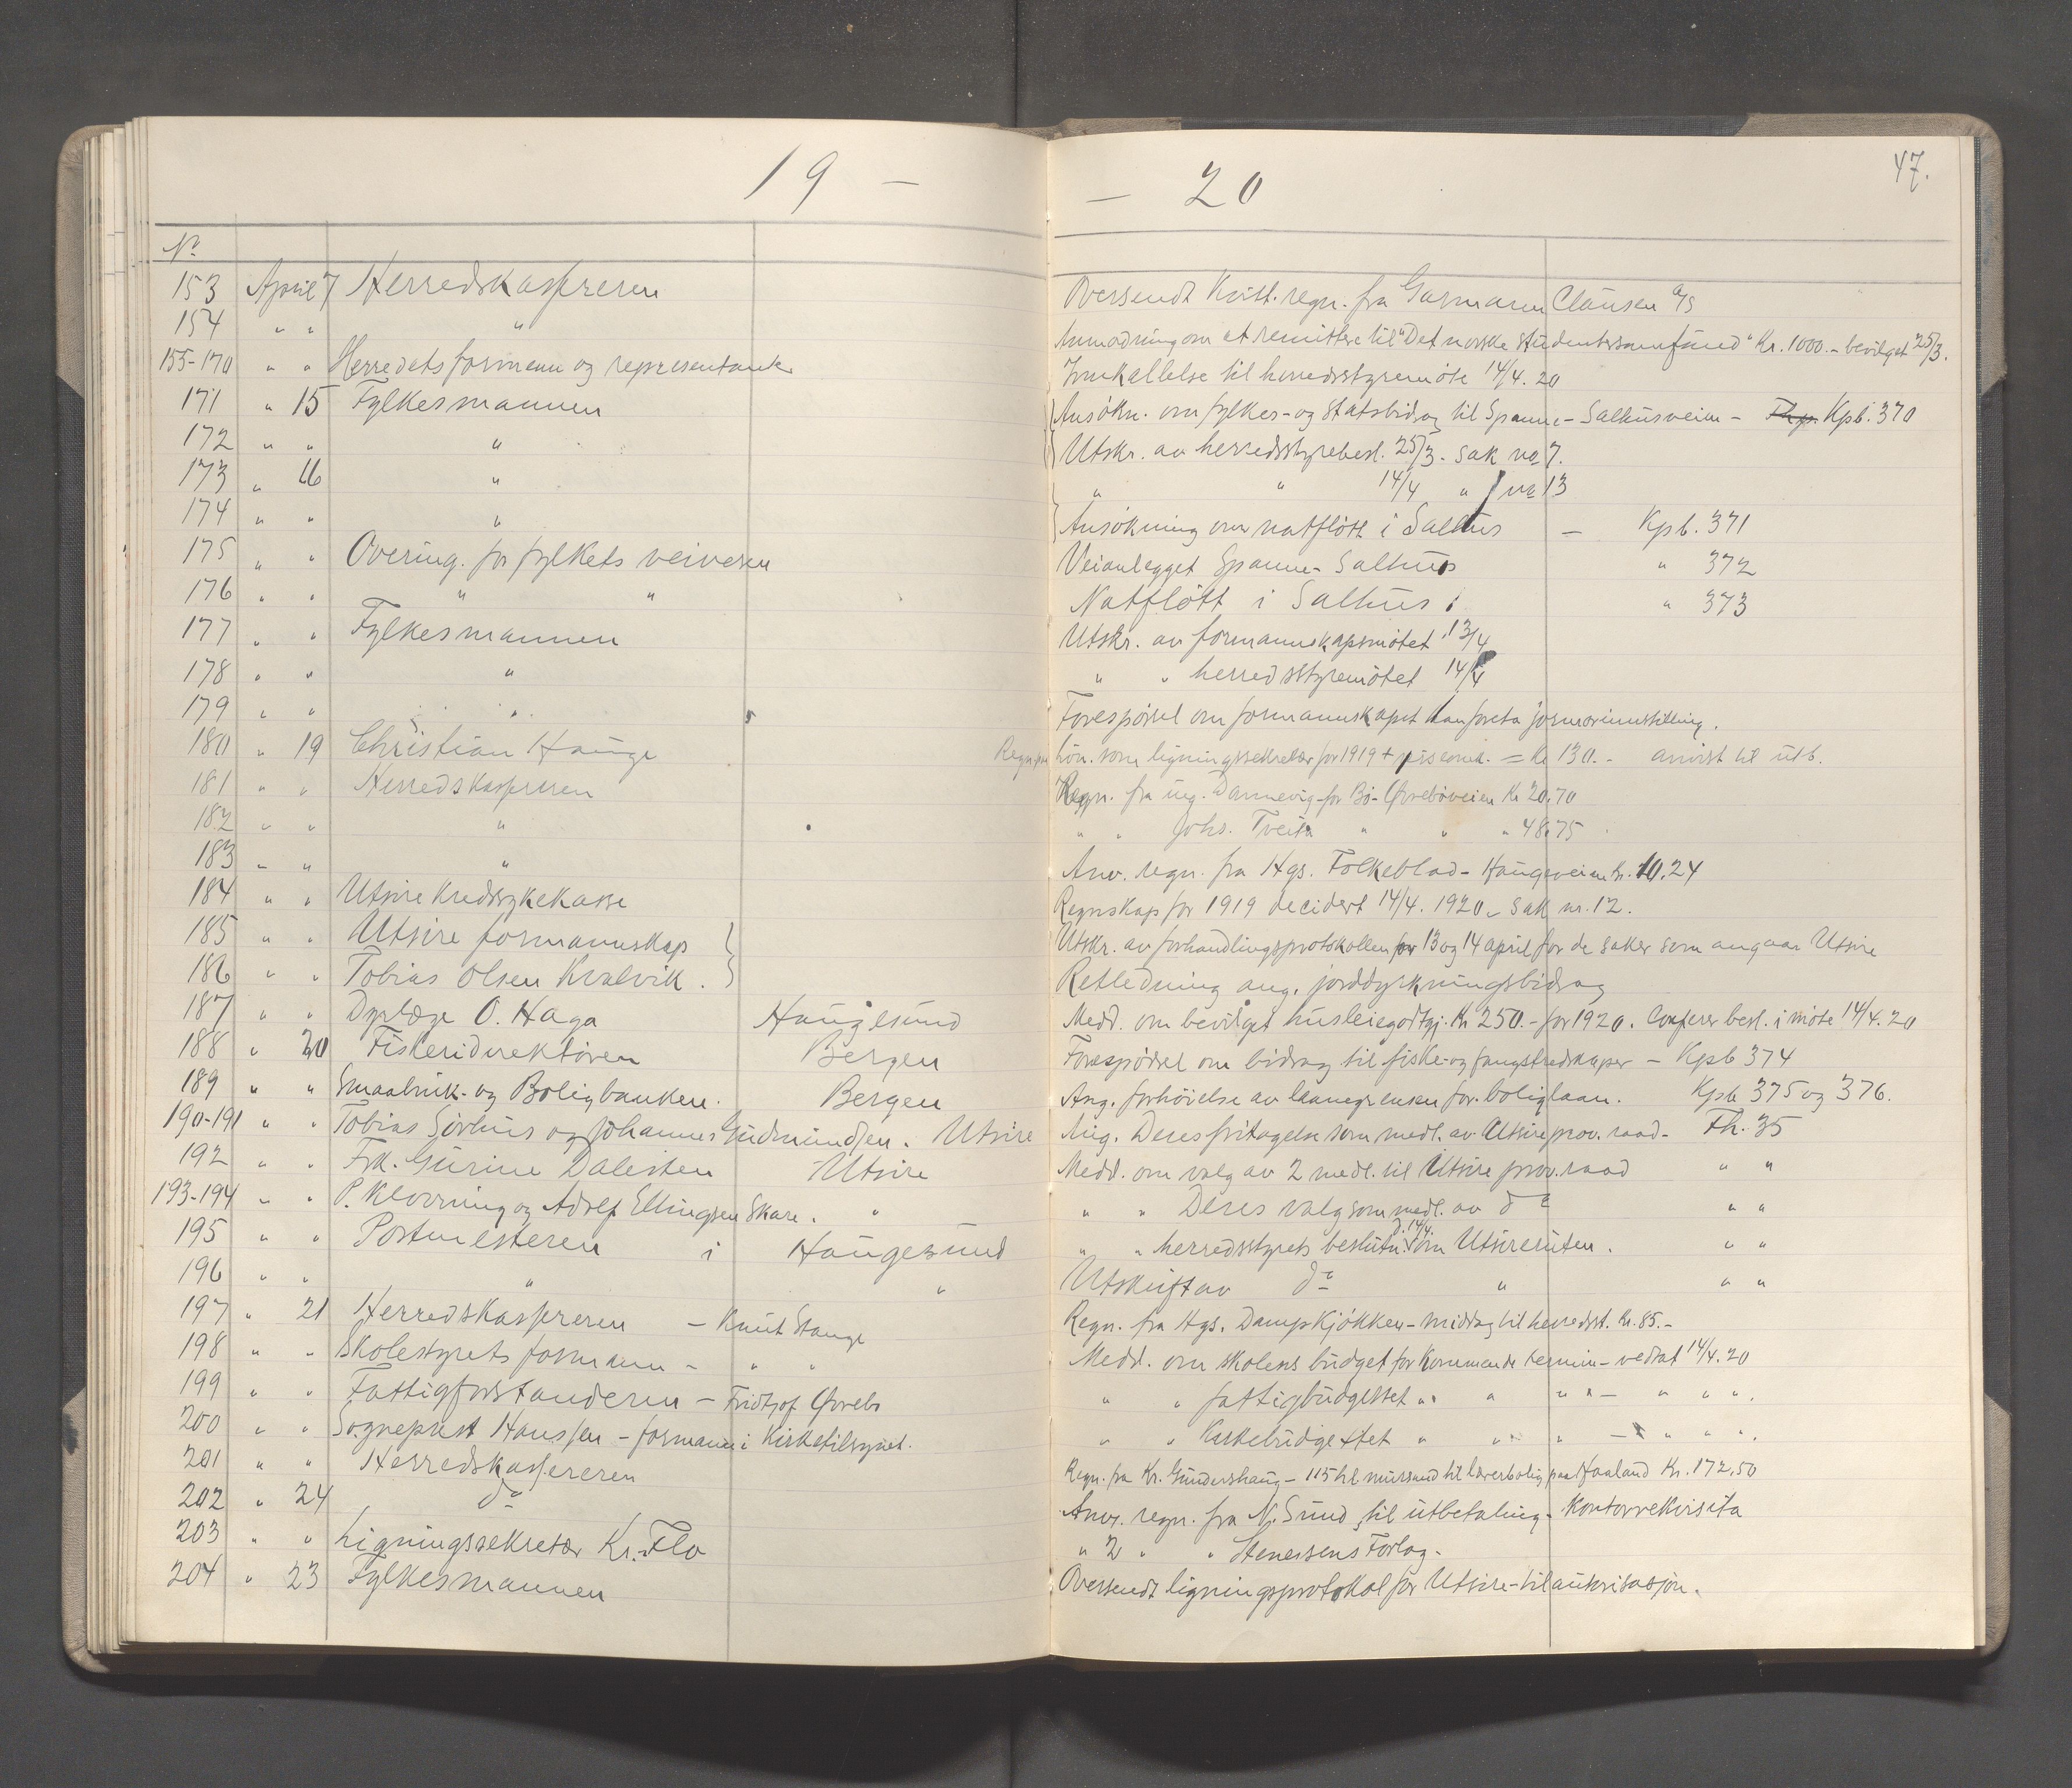 19 — — 20
47.
No
153 April 7 Herredskassereren Oversendt Kvitt. regn. fra Garmann Clausen A/S
154 " " " Anmodning om at remittere til "Det norske studentersamfund" Kr. 1000.- bevilget 25/3.
155-170 " " Herredets formenn og representanter Innkallelse til herredsstyremöte 14/4. 20
171 " 15 Fylkesmannen Ansökn. om fylkes- og statsbidrag til Spanne-Salhusveien - Kpb. 370
172 " " " Utskr. av herredsstyrebesl. 25/3. sak no 7.
173 " 16 " " " 14/4 " no 13
174 " " " Ansökning om natflött i Salhus — Kpb. 371
175 " " Overing. for fylkets veivesen Veianlegget Spanne-Salhus " 372
176 " " " " Natflött i Salhus " 373
177 " " Fylkesmannen Utskr. av formannskapsmötet 13/4
178 " " " " " herredsstyremötet 14/4
179 " " " Forespörsel om formannskapet kan foreta innstilling.
180 " 19 Christian Hauge Regn. paa hön. som ligningssekretær for 1919 + = Kr 130.- anvist til utb.
181 " " Herredskassereren Regn. fra ing. Dannevig for Bö-Övreböveien Kr 20.70
182 " " " " " Johs. Tveita " " " 48.75
183 " " " Anv. regn. fra Hgs. Folkeblad - Haugeveien Kr. 10.24
184 " " Utsire Kredssykekasse Regnskap for 1919 decidert 14/4. 1920 - sak nr. 12.
185 " " Utsire formannskap } Utskr. av forhandlingsprotokollen for 13 og 14 april for de saker som angaar Utsire
186 " " Tobias Olsen Kvalvik. } Retledning ang. jorddyrkningsbidrag
187 " " Dyrlæge O. Haga Haugesund Medd. om bevilget husleiegodtgj. Kr 250.- for 1920. Conferer besl. i möte 14/4. 20
188 " 20 Fiskeridirektören Bergen Forespörsel om bidrag til fiske- og fangstredskaper - Kpb 374
189 " " Smaabruk- og Boligbanken. Bergen Ang. forhöielse av laanegrensen for boliglaan. Kpb 375 og 376.
190-191 " " Tobias Sörhus og Johannes Gudmundsen. Utsire Ang. Deres fritagelse som medl. av Utsire prov. raad - Fh. 35
192 " " Frk. Gurine Dalesten Utsire Medd. om valg av 2 medl. til Utsire prov. raad " "
193-194 " " P. Klovning og Adolf Ellingsen Skare. " " " Deres valg som medl. av do " "
195 " " Postmesteren i Haugesund " " herredsstyrets beslutn. d. 14/4. om Utsireruten. " "
196 " " " " Utskrift av do " " "
197 " 21 Herredskassereren - Knut Stange Regn. fra Hgs. Dampkjökken - middag til herredsst. Kr. 85.-
198 " " Skolestyrets formann - " " Medd. om skolens budget for kommende termin - vedtat 14/4. 20
199 " " Fattigforstanderen - Fridtjof Övrebö " " fattigbudgettet " " " " - " " ".
200 " " Sogneprest Hanssen - formann i Kirketilsynet. " " Kirkebudgettet " " " - " " ".
201 " " Herredskassereren Regn. fra Kr. Gundershaug - 115 hl mursand til lærerbolig paa Haaland Kr. 172,50
202 " 24 do Anv. regn. fra N. Sund til utbetaling - Kontorrekvisita
203 " " Ligningssekretær Kr. Flo " 2 " " Stenersens Forlag -
204 " 23 Fylkesmannen Oversendt ligningsprotokol for Utsire - til autorisasjon.